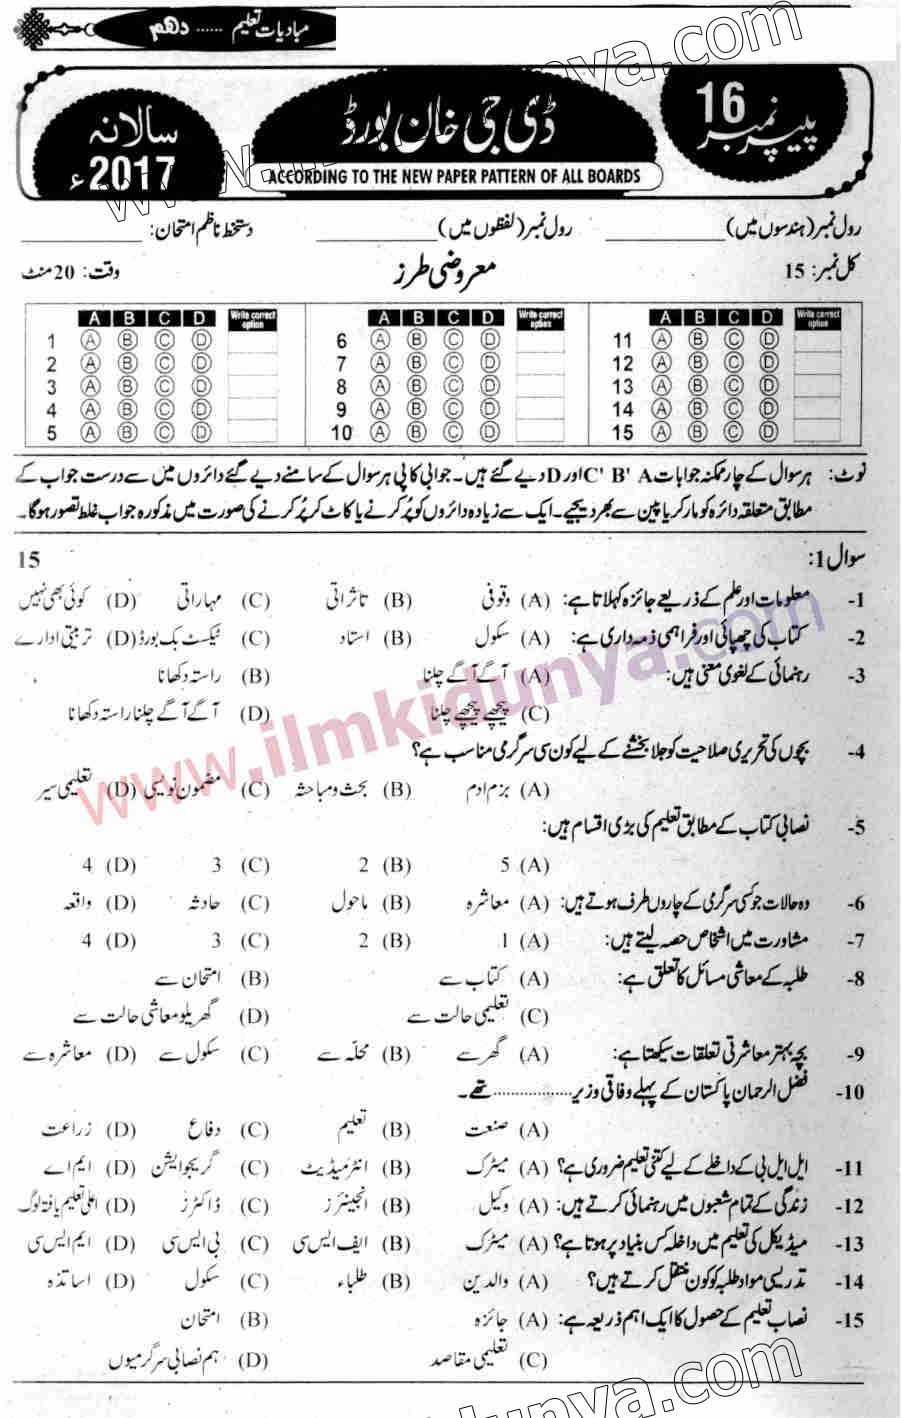 مبادیات تعلیم ...... دھم
سالانہ 2017ء
ڈی جی خان بورڈ
ACCORDING TO THE NEW PAPER PATTERN OF ALL BOARDS
پیپر نمبر 16
رول نمبر (ہندسوں میں) ____________ رول نمبر (لفظوں میں) ____________ دستخط ناظم امتحان: ____________
کل نمبر: 15 معروضی طرز وقت: 20 منٹ
A B C D Write correct option A B C D Write correct option A B C D Write correct option
1 A B C D 6 A B C D 11 A B C D
2 A B C D 7 A B C D 12 A B C D
3 A B C D 8 A B C D 13 A B C D
4 A B C D 9 A B C D 14 A B C D
5 A B C D 10 A B C D 15 A B C D
نوٹ: ہر سوال کے چار ممکنہ جوابات A 'B 'C اور D دیے گئے ہیں۔ جوابی کاپی ہر سوال کے سامنے دیے گئے دائروں میں سے درست جواب کے
مطابق متعلقہ دائرہ کو مارکر یا پین سے بھر دیجیے۔ ایک سے زیادہ دائروں کو پُر کرنے یا کاٹ کر پُر کرنے کی صورت میں مذکورہ جواب غلط تصور ہوگا۔
سوال 1: 15
1- معلومات اور علم کے ذریعے جائزہ کہلاتا ہے: (A) وقوفی (B) تاثراتی (C) مہاراتی (D) کوئی بھی نہیں
2- کتاب کی چھپائی اور فراہمی ذمہ داری ہے: (A) سکول (B) استاد (C) ٹیکسٹ بک بورڈ (D) تربیتی ادارے
3- رہنمائی کے لغوی معنی ہیں: (A) آگے آگے چلنا (B) راستہ دکھانا
(C) پیچھے پیچھے چلنا (D) آگے آگے چلنا راستہ دکھانا
4- بچوں کی تحریری صلاحیت کو جلا بخشنے کے لیے کون سی سرگرمی مناسب ہے؟
(A) بزم ادم (B) بحث و مباحثہ (C) مضمون نویسی (D) تعلیمی سیر
5- نصابی کتاب کے مطابق تعلیم کی بڑی اقسام ہیں:
(A) 5 (B) 2 (C) 3 (D) 4
6- وہ حالات جو کسی سرگرمی کے چاروں طرف ہوتے ہیں: (A) معاشرہ (B) ماحول (C) حادثہ (D) واقعہ
7- مشاورت میں اشخاص حصہ لیتے ہیں: (A) 1 (B) 2 (C) 3 (D) 4
8- طلبہ کے معاشی مسائل کا تعلق ہے: (A) کتاب سے (B) امتحان سے
(C) تعلیمی حالت سے (D) گھریلو معاشی حالت سے
9- بچہ بہتر معاشرتی تعلقات سیکھتا ہے: (A) گھر سے (B) محلّہ سے (C) سکول سے (D) معاشرہ سے
10- فضل الرحمان پاکستان کے پہلے وفاقی وزیر .................. تھے۔
(A) صنعت (B) تعلیم (C) دفاع (D) زراعت
11- ایل ایل بی کے داخلے کے لیے کتنی تعلیم ضروری ہے؟ (A) میٹرک (B) انٹرمیڈیٹ (C) گریجوایشن (D) ایم اے
12- زندگی کے تمام شعبوں میں رہنمائی کرتے ہیں: (A) وکیل (B) انجینئرز (C) ڈاکٹرز (D) اعلیٰ تعلیم یافتہ لوگ
13- میڈیکل کی تعلیم میں داخلہ کس بنیاد پر ہوتا ہے؟ (A) میٹرک (B) ایف ایس سی (C) بی ایس سی (D) ایم ایس سی
14- تدریسی مواد طلبہ کو کون منتقل کرتے ہیں؟ (A) والدین (B) طلباء (C) سکول (D) اساتذہ
15- نصاب تعلیم کے حصول کا ایک اہم ذریعہ ہے: (A) جائزہ (B) امتحان
(C) تعلیمی مقاصد (D) ہم نصابی سرگرمیوں
www.ilmkidunya.com